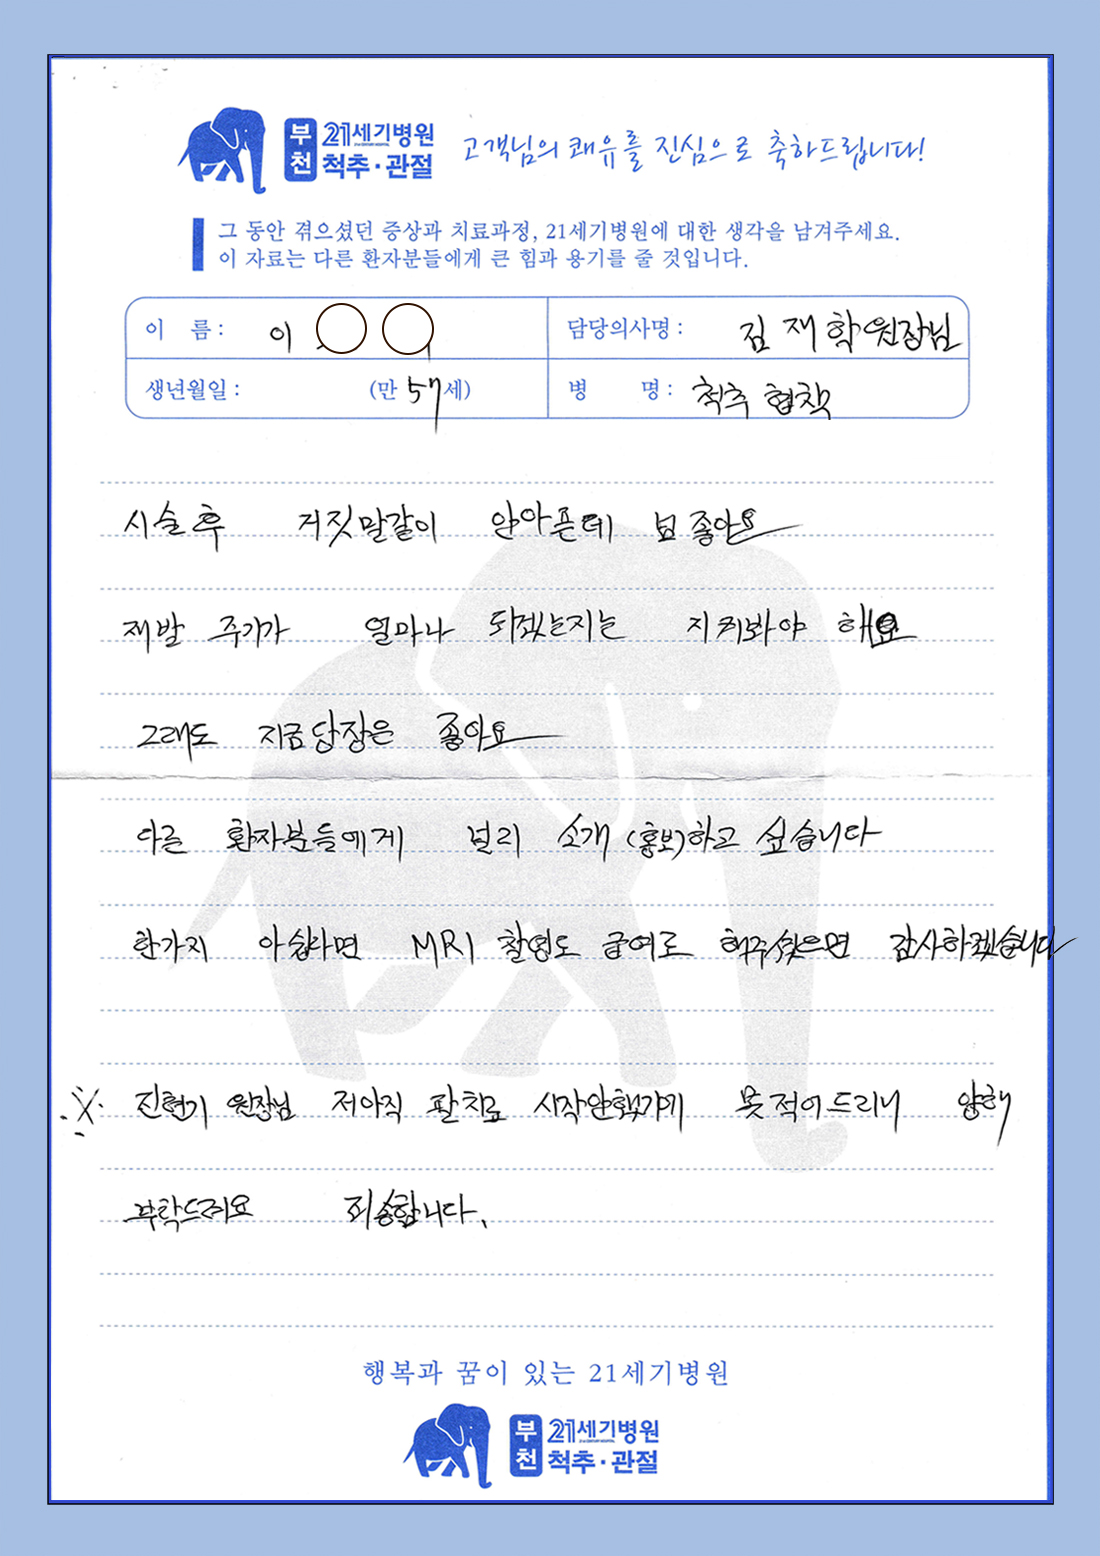 부천 21세기병원 척추·관절
고객님의 쾌유를 진심으로 축하드립니다!
그 동안 겪으셨던 증상과 치료과정, 21세기병원에 대한 생각을 남겨주세요.
이 자료는 다른 환자분들에게 큰 힘과 용기를 줄 것입니다.
이 름 : 이 담당의사명 : 김재학원장님
생년월일 : (만 57세) 병 명 : 척추 협착
시술후 거짓말같이 안아픈데 넘 좋아요
재발 주기가 얼마나 되겠는지는 지켜봐야 해요
그래도 지금당장은 좋아요
다른 환자분들에게 널리 소개 (홍보)하고 싶습니다
한가지 아쉽다면 MRI 촬영도 급여로 해주셨으면 감사하겠습니다
※ 진현기 원장님 저아직 팔치료 시작안했가기 못적어드리니 양해
부탁드려요 죄송합니다.
행복과 꿈이 있는 21세기병원
부천 21세기병원 척추·관절